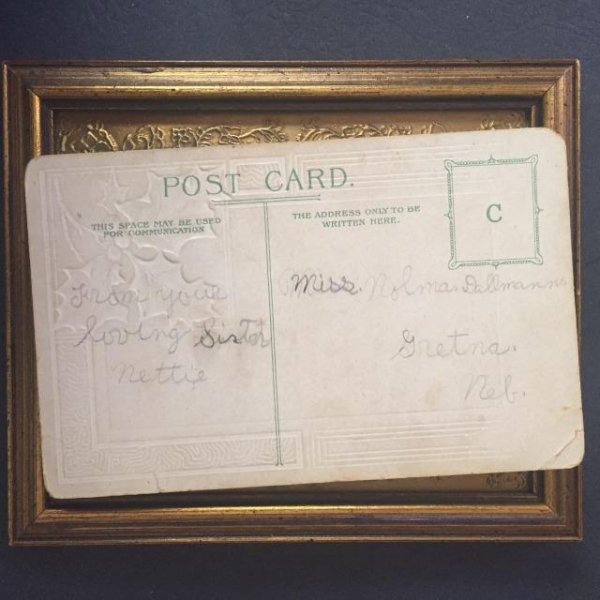 POST CARD.
THIS SPACE MAY BE USED
FOR COMMUNICATION
THE ADDRESS ONLY TO BE
WRITTEN HERE.
C
From your
loving Sister
Nettie
Miss. Nolma. Dallmann
Gretna.
Neb.